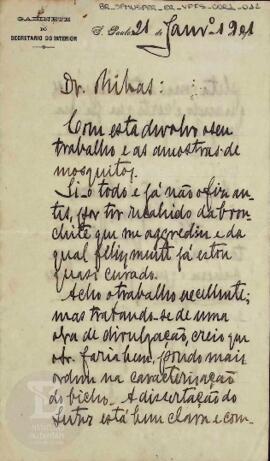 BR_SPMUSPER_ER_VPES_CORR_012
GABINETE
DO
SECRETARIO DO INTERIOR
S. Paulo, 21 de Janr.º 1901
Dr. Ribas:
Com esta devolvo o seu
trabalho e as amostras de
mosquitos.
Li-o todo e já não o fiz an-
tes, por ter recahido da bron-
chite que me aggrediu e da
qual felizmente já estou
quasi curado.
Acho o trabalho excellente;
mas tratando-se de uma
obra de divulgação, creio que
o Sr. faria bem, pondo mais
ordem na caracterisação
do bicho. A dissertação do
está bem clara e com-